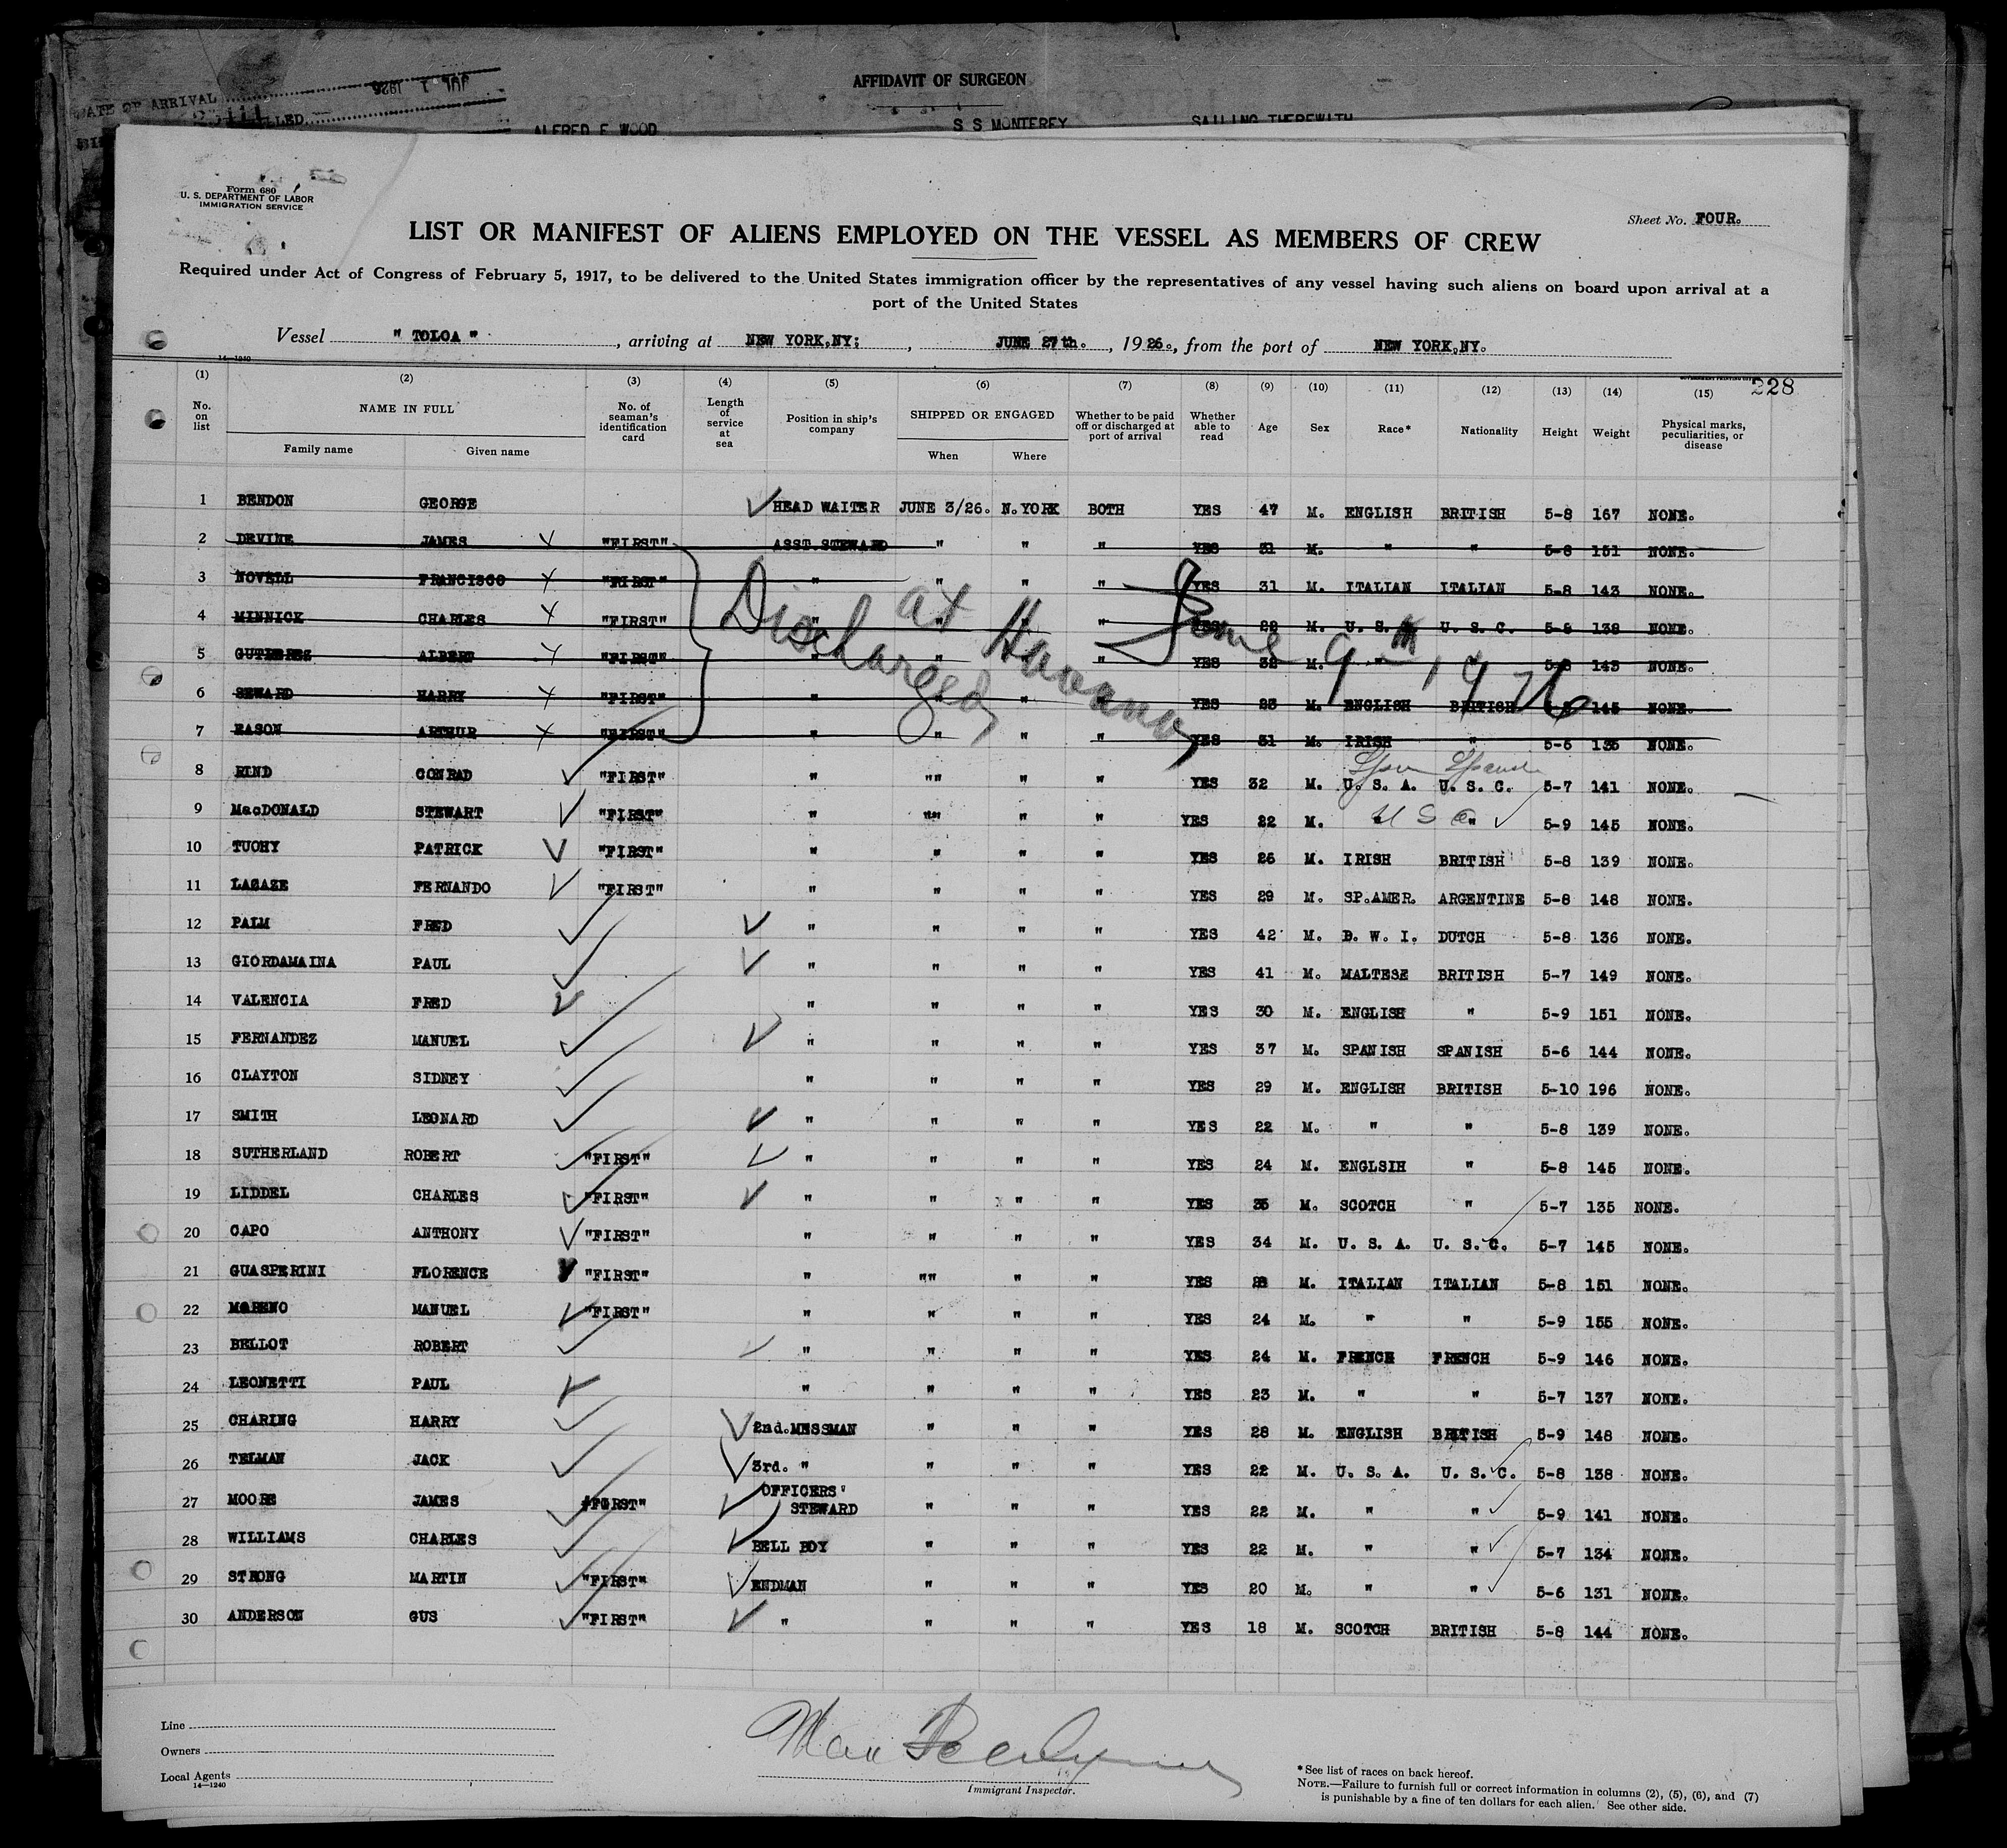 AFFIDAVIT OF SURGEON
DATE OF ARRIVAL JUL 1 1926
ALFRED E WOOD S S MONTEREY SAILING THEREWITH
Form 680
U. S. DEPARTMENT OF LABOR
IMMIGRATION SERVICE
Sheet No. FOUR.
LIST OR MANIFEST OF ALIENS EMPLOYED ON THE VESSEL AS MEMBERS OF CREW
Required under Act of Congress of February 5, 1917, to be delivered to the United States immigration officer by the representatives of any vessel having such aliens on board upon arrival at a
port of the United States
Vessel " TOLOA " , arriving at NEW YORK,NY; , JUNE 27th. , 1926., from the port of NEW YORK,NY.
14—1240
228
(1) (2) (3) (4) (5) (6) (7) (8) (9) (10) (11) (12) (13) (14) (15)
No. on list NAME IN FULL Family name Given name No. of seaman's identification card Length of service at sea Position in ship's company SHIPPED OR ENGAGED When Where Whether to be paid off or discharged at port of arrival Whether able to read Age Sex Race* Nationality Height Weight Physical marks, peculiarities, or disease
1 BENDON GEORGE HEAD WAITER JUNE 3/26. N.YORK BOTH YES 47 M. ENGLISH BRITISH 5-8 167 NONE.
2 DEVINE JAMES "FIRST" ASST.STEWARD " " " YES 31 M. " " 5-8 151 NONE.
3 NOVELL FRANCISCO "FIRST" " " " " YES 31 M. ITALIAN ITALIAN 5-8 143 NONE.
4 MINNICK CHARLES "FIRST" " " " " YES 22 M. U. S. A. U. S. C. 5-8 138 NONE.
5 GUTIEREZ ALBERT "FIRST" " " " " YES 32 M. " " 5-8 143 NONE.
6 SEWARD HARRY "FIRST" " " " " YES 23 M. ENGLISH BRITISH 145 NONE.
7 EASON ARTHUR "FIRST" " " " " YES 31 M. IRISH " 5-6 135 NONE.
Discharged at Havana, June 9th, 1926
8 RIND CONRAD "FIRST" " "" " " YES 32 M. U. S. A. U. S. C. 5-7 141 NONE.
Span Spanish
9 MacDONALD STEWART "FIRST" " "" " " YES 22 M. " " 5-9 145 NONE.
U S C
10 TUOHY PATRICK "FIRST" " " " " YES 26 M. IRISH BRITISH 5-8 139 NONE.
11 LASAZE FERNANDO "FIRST" " " " " YES 29 M. SP.AMER. ARGENTINE 5-8 148 NONE.
12 PALM FRED " " " " YES 42 M. B. W. I. DUTCH 5-8 136 NONE.
13 GIORDAMAINA PAUL " " " " YES 41 M. MALTESE BRITISH 5-7 149 NONE.
14 VALENCIA FRED " " " " YES 30 M. ENGLISH " 5-9 151 NONE.
15 FERNANDEZ MANUEL " " " " YES 37 M. SPANISH SPANISH 5-6 144 NONE.
16 CLAYTON SIDNEY " " " " YES 29 M. ENGLISH BRITISH 5-10 196 NONE.
17 SMITH LEONARD " " " " YES 22 M. " " 5-8 139 NONE.
18 SUTHERLAND ROBERT "FIRST" " " " " YES 24 M. ENGLSIH " 5-8 145 NONE.
19 LIDDEL CHARLES "FIRST" " " " " YES 35 M. SCOTCH " 5-7 135 NONE.
20 CAPO ANTHONY "FIRST" " " " " YES 34 M. U. S. A. U. S. C. 5-7 145 NONE.
21 GUASPERINI FLORENCE "FIRST" " "" " " YES 28 M. ITALIAN ITALIAN 5-8 151 NONE.
22 MORENO MANUEL "FIRST" " " " " YES 24 M. " " 5-9 155 NONE.
23 BELLOT ROBERT " " " " YES 24 M. FRENCH FRENCH 5-9 146 NONE.
24 LEONETTI PAUL " " " " YES 23 M. " " 5-7 137 NONE.
25 CHARING HARRY 2nd.MESSMAN " " " YES 28 M. ENGLISH BRITISH 5-9 148 NONE.
26 TELMAN JACK 3rd. " " " " YES 22 M. U. S. A. U. S. C. 5-8 138 NONE.
27 MOORE JAMES "FIRST" OFFICERS' STEWARD " " " YES 22 M. " " 5-9 141 NONE.
28 WILLIAMS CHARLES BELL BOY " " " YES 22 M. " " 5-7 134 NONE.
29 STRONG MARTIN "FIRST" ENDMAN " " " YES 20 M. " " 5-6 131 NONE.
30 ANDERSON GUS "FIRST" " " " " YES 18 M. SCOTCH BRITISH 5-8 144 NONE.
Line
Owners
Local Agents
14—1240
Immigrant Inspector.
*See list of races on back hereof.
NOTE.—Failure to furnish full or correct information in columns (2), (5), (6), and (7)
is punishable by a fine of ten dollars for each alien. See other side.